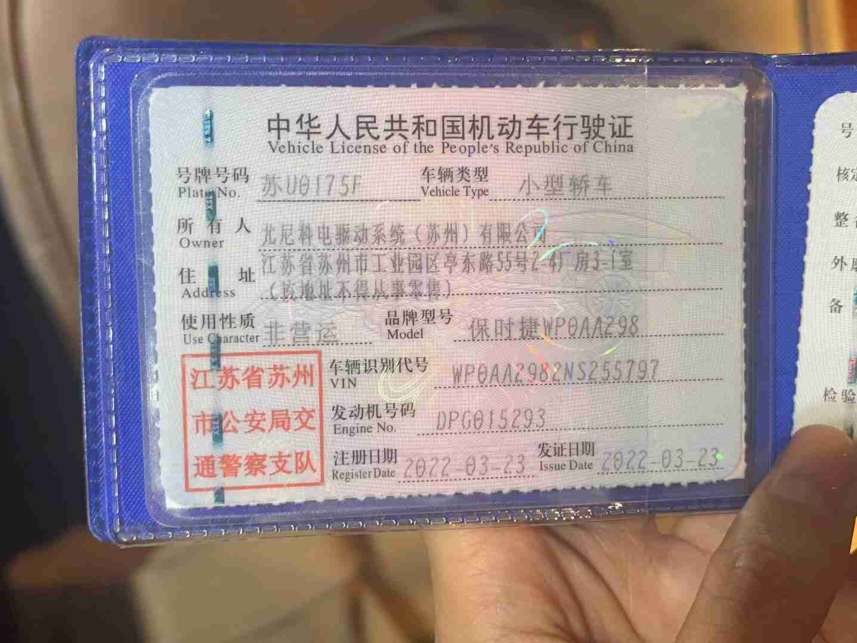 中华人民共和国机动车行驶证
Vehicle License of the People's Republic of China
号牌号码 苏U0175F 车辆类型 小型轿车
Plate No. Vehicle Type
所有人 尤尼科电驱动系统（苏州）有限公司
Owner
住址 江苏省苏州市工业园区亭东路55号2-4厂房3-1室
Address （该地址不得从事零售）
使用性质 非营运 品牌型号 保时捷WP0AA298
Use Character Model
江苏省苏州
市公安局交
通警察支队
车辆识别代号 WP0AA2982NS255797
VIN
发动机号码 DPG015293
Engine No.
注册日期 2022-03-23 发证日期 2022-03-23
Register Date Issue Date
号
核定
整
外
备
检验